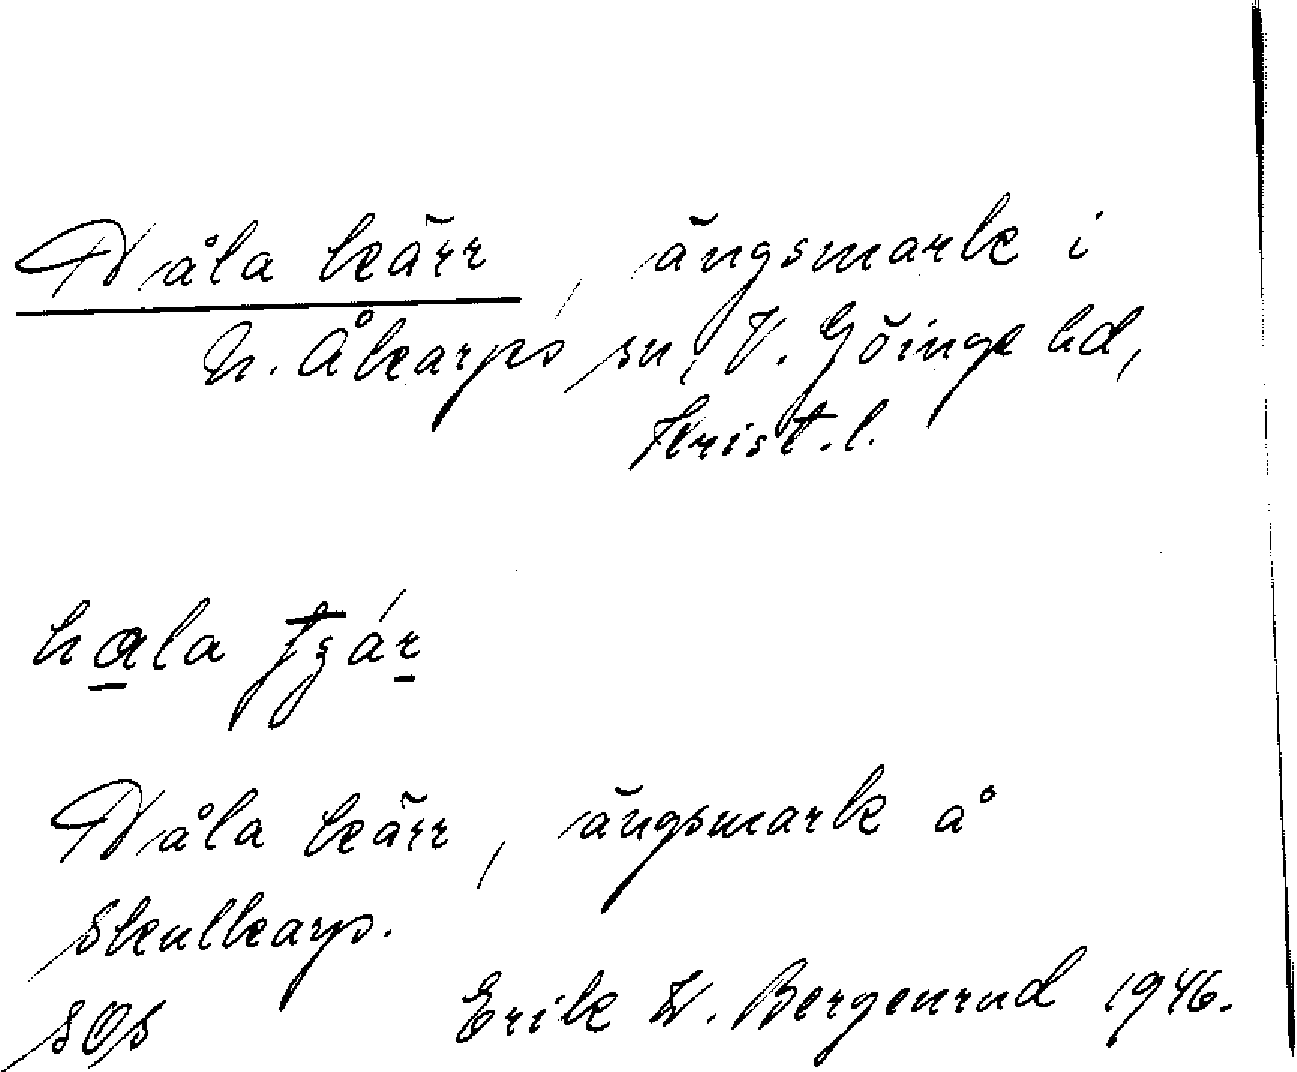 Håla kärr, ängsmark i
N. Åkarps sn, V. Göinge hd,
Krist. l.
hala tʒár
Håla kärr, ängsmark å
Skulkarp.
SOS Erik W. Bergenrud 1946.